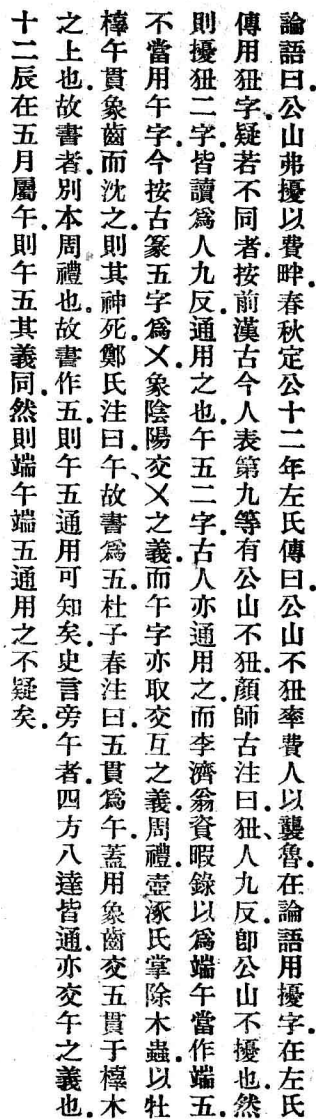 論語曰.公山弗擾以費畔.春秋定公十二年左氏傳曰.公山不狃率費人以襲魯.在論語用擾字.在左氏
傳用狃字.疑若不同者.按前漢古今人表第九等有公山不狃.顏師古注曰.狃、人九反.卽公山不擾也.然
則擾狃二字.皆讀爲人九反.通用之也.午五二字.古人亦通用之.而李濟翁資暇錄以爲端午當作端五.
不當用午字.今按古篆五字爲㐅.象陰陽交㐅之義.而午字亦取交互之義.周禮.壺涿氏掌除木蟲.以牡
橭午貫象齒而沈之.則其神死.鄭氏注曰.午、故書爲五.杜子春注曰.五貫爲午.蓋用象齒交五貫于橭木
之上也.故書者.別本周禮也.故書作五.則午五通用可知矣.史言旁午者.四方八達皆通.亦交午之義也.
十二辰在五月屬午.則午五其義同.然則端午端五通用之不疑矣.